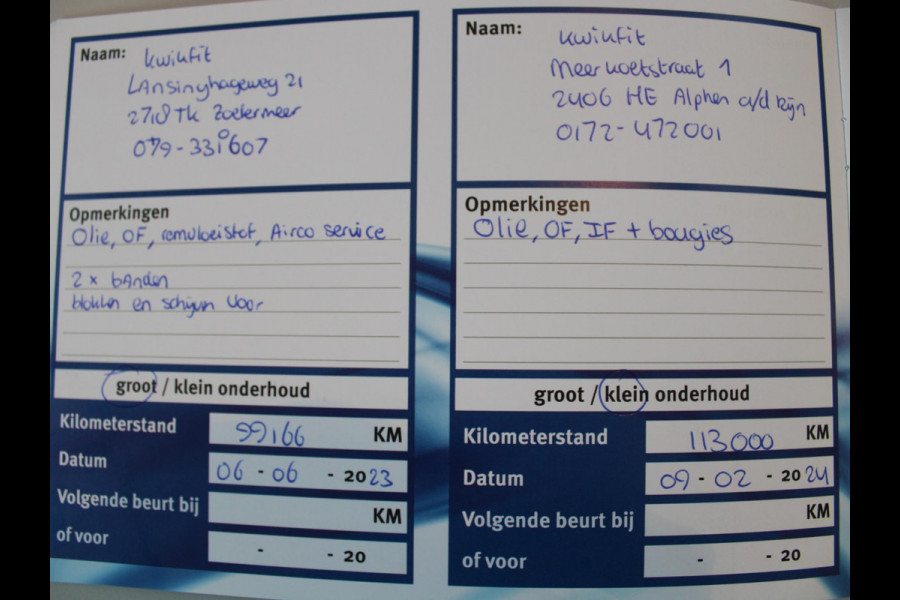 Naam: KwikFit
LAnsinghageweg 21
2718 TK Zoetermeer
079-3310607
Opmerkingen
Olie, OF, remvloeistof, Airco service
2 x bAnden
blokken en schijven voor
groot / klein onderhoud
Kilometerstand 99166 KM
Datum 06 - 06 - 2023
Volgende beurt bij KM
of voor - - 20
Naam: KwikFit
Meerkoetstraat 1
2406 HE Alphen a/d Rijn
0172-472001
Opmerkingen
Olie, OF, IF + bougies
groot / klein onderhoud
Kilometerstand 113000 KM
Datum 09 - 02 - 2024
Volgende beurt bij KM
of voor - - 20